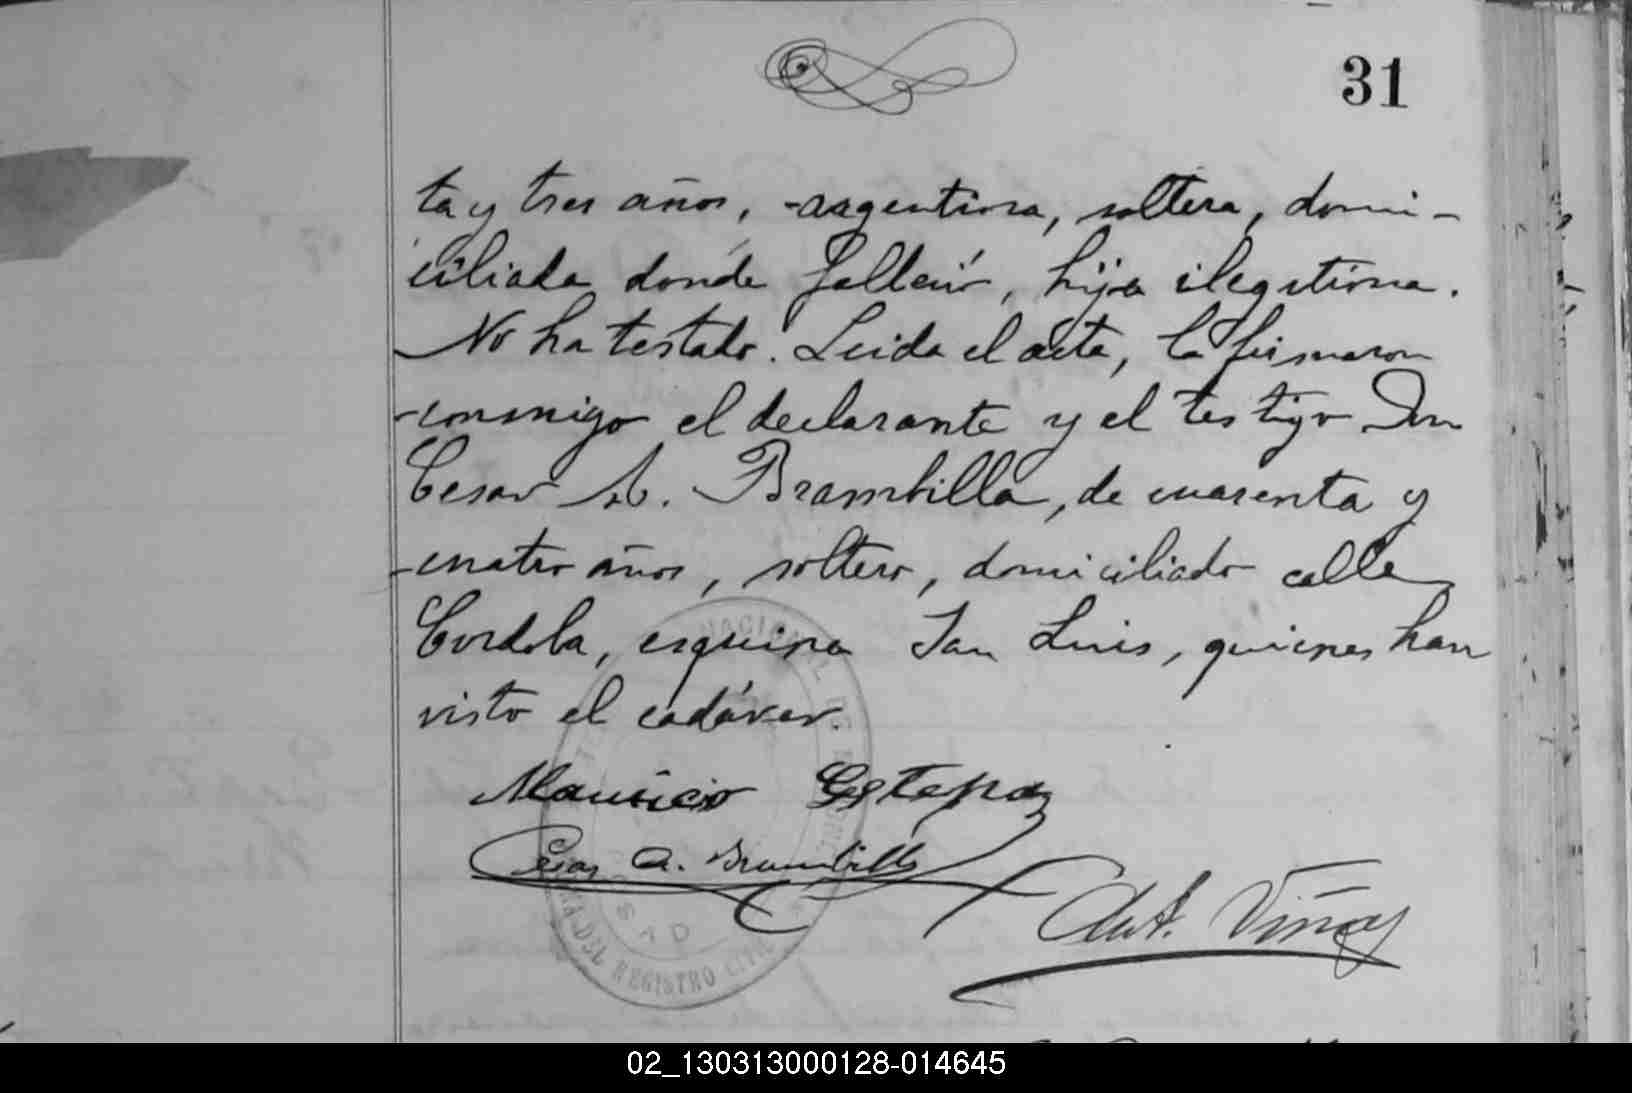 31
ta y tres años, argentina, soltera, domi-
ciliada donde falleció, hija ilegitima.
No ha testado. Leida el acta, la firmaron
conmigo el declarante y el testigo Don
Cesar A. Brambilla, de cuarenta y
cuatro años, soltero, domiciliado calle
Cordoba, esquina San Luis, quienes han
visto el cadáver.
Mauricio Estepa
Cesar A. Brambilla
Viñas
DEL REGISTRO CIVIL
02_130313000128-014645